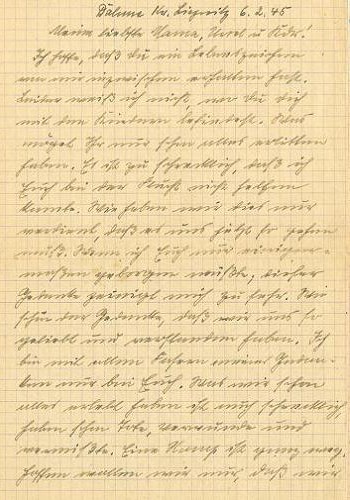 Dähme Kr. Liegnitz 6.2.45
Meine liebste Mama, Ursel u. Kdr.!
Ich hoffe, daß du ein Lebenszeichen
von mir inzwischen erhalten hast.
Leider weiß ich nicht, wo du dich
mit den Kindern befindest. Was
mögt Ihr nur schon alles erlitten
haben. Es ist zu schrecklich, daß ich
Euch bei der Flucht nicht helfen
konnte. Wie haben wir dies nur
verdient, daß es uns jetzt so gehen
muß. Wenn ich Euch nur einiger-
maßen geborgen wüßte, dieser
Gedanke peinigt mich zu sehr. Wie
schön der Gedanke, daß wir uns so
geliebt und verstanden haben. Ich
bin mit allen Fasern meiner Gedan-
ken nur bei Euch. Was wir schon
alles erlebt haben ist auch schrecklich,
haben schon Tote, verwundete und
vermißte. Eine Komp. ist ganz weg.
Hoffen wollen wir nur, daß wir